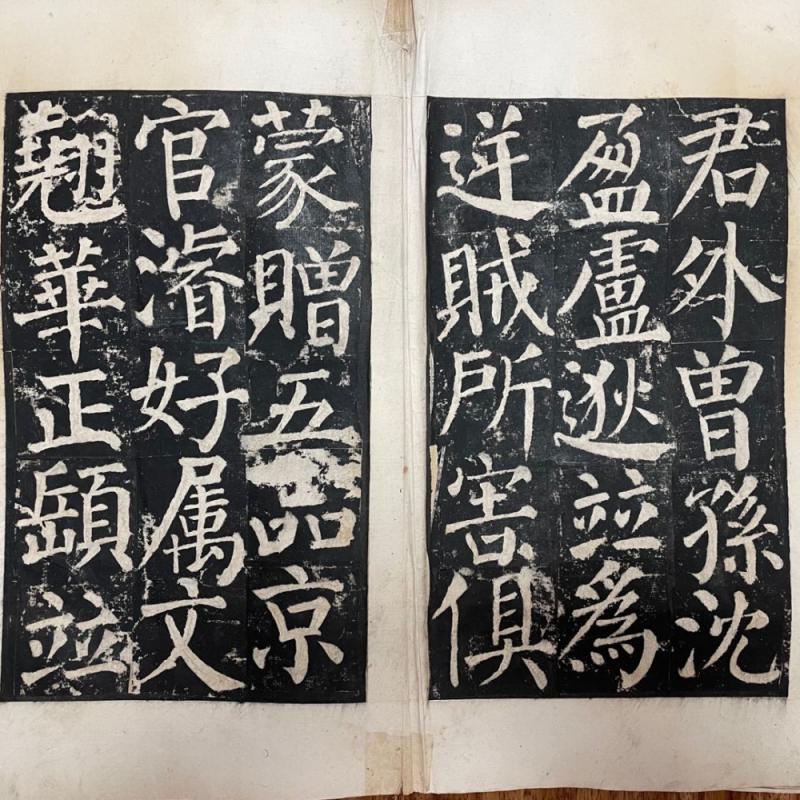 君外曾孫沈
盈盧逖並為
逆賊所害俱
蒙贈五品京
官濬好属文
翹華正頤並